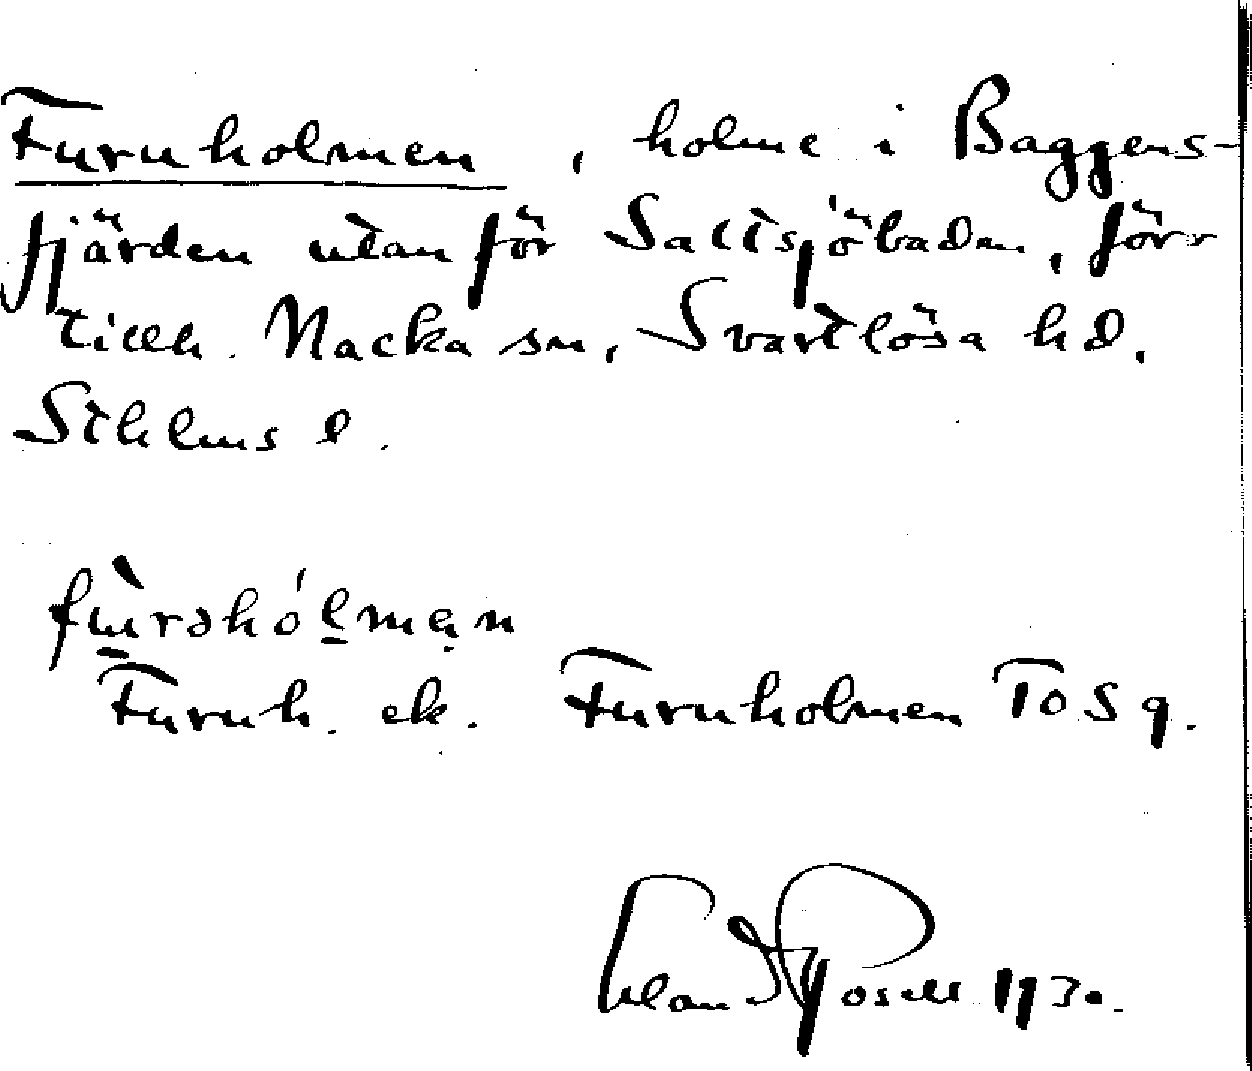 Furuholmen, holme i Baggens-
fjärden utanför Saltsjöbaden, förr
tillh. Nacka sn, Svartlösa hd,
Sthlms l.
Furuh. ek. Furuholmen
Rosell 1930.